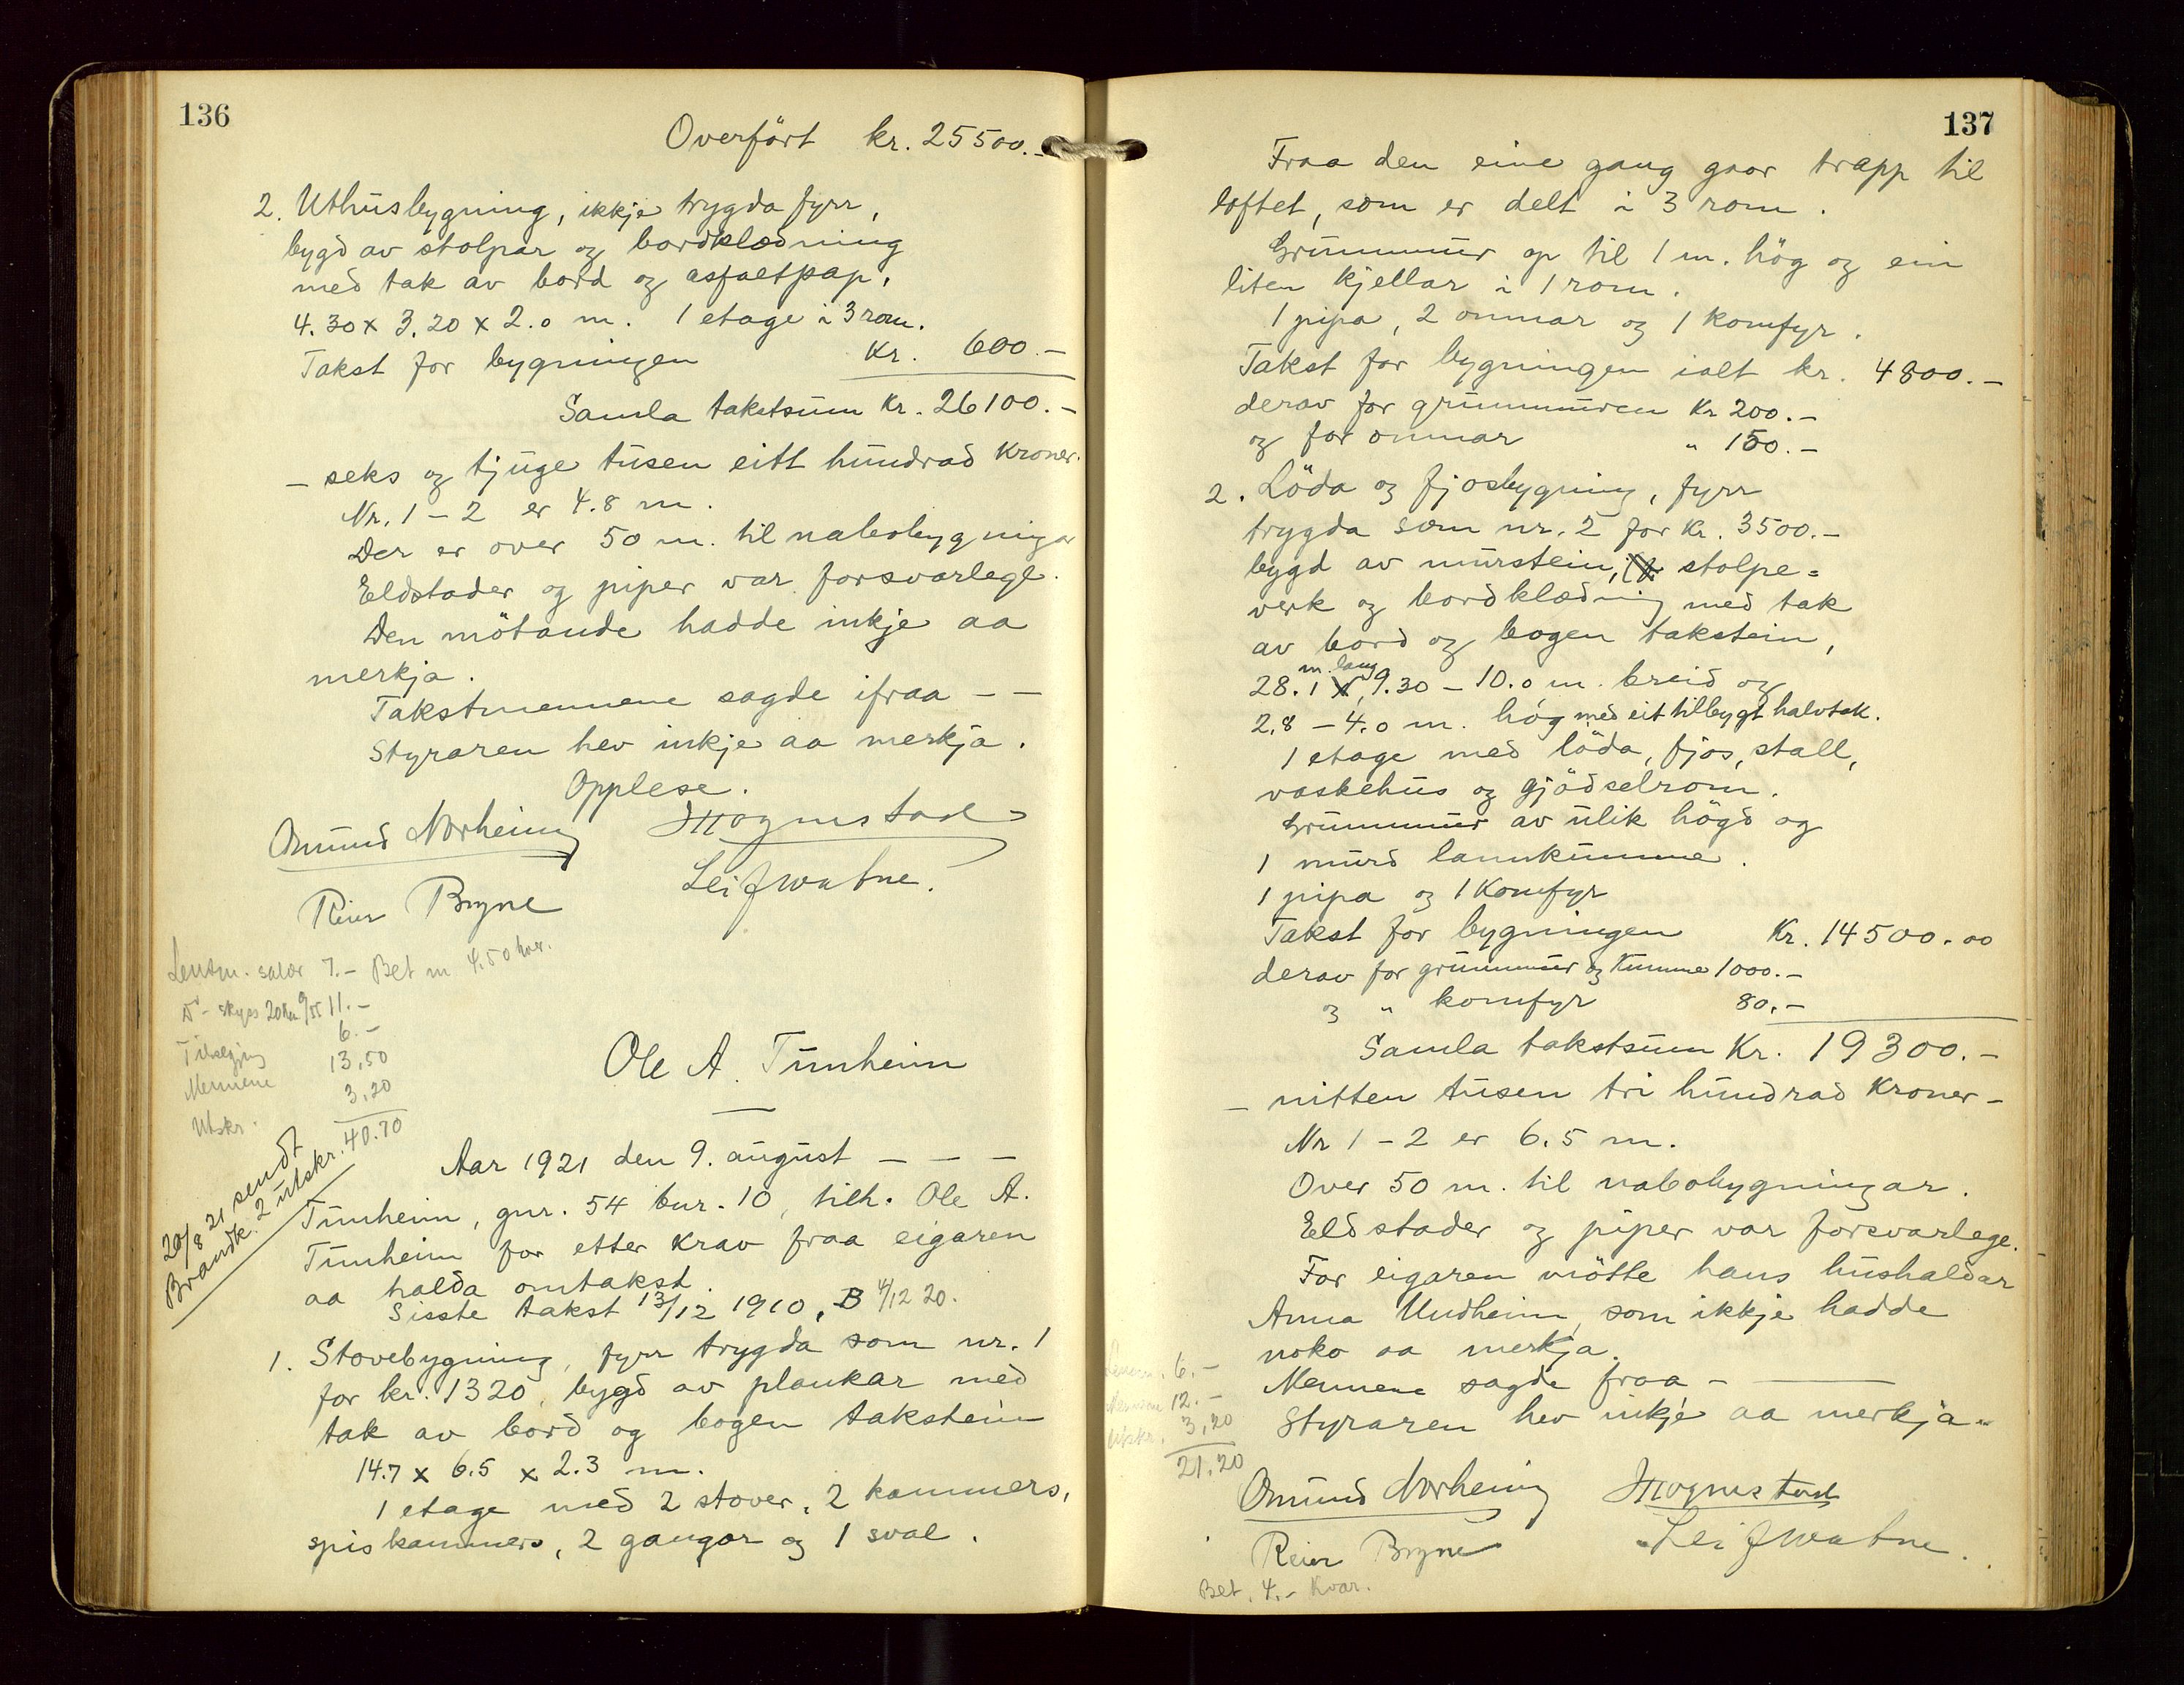 136
Overført kr. 25500.-
2. Uthusbygning, ikkje trygda fyrr,
bygd av stolpar og bordklædning
med tak av bord og asfaltpap.
4.30 x 3.20 x 2.0 m. 1 etage i 3 rom.
Takst for bygningen Kr. 600.-
Samla takstsum Kr. 26100.-
- seks og tjuge tusen eitt hundrad Kroner.
Nr. 1 - 2 er 4.8 m.
Der er over 50 m. til nabobygningar
Eldstader og piper var forsvarlege.
Den møtande hadde inkje aa
merkja.
Takstmennene sagde ifraa - -
Styraren hev inkje aa merkja.
Opplese.
Omund Norheim Mognstad
Reier Bryne Leif Watne.
Lensm. salær 7.- Bet m 4.50 hver.
Do - skyss 20 km 9/55 11.-
Tilsegjing 6.-
Mennene 13,50
Utskr. 3,20
40.70
Ole A. Tunheim
20/8 21 sendt
Brandk. 2 utskr.
Aar 1921 den 9. august - - -
Tunheim, gnr. 54 bnr. 10, tilh. Ole A.
Tunheim for etter Krav fraa eigaren
aa halda omtakst.
Sisste takst 13/12 1910, B 4/12 20.
1. Stovebygning, fyrr trygda som nr. 1
for kr. 1320, bygd av plankar med
tak av bord og bogen takstein
14.7 x 6.5 x 2.3 m.
1 etage med 2 stover, 2 kammers,
spiskammers, 2 gangar og 1 sval.
137
Fraa den eine gang gaar trapp til
loftet, som er delt i 3 rom.
Grunnmur op til 1 m. høg og ein
liten kjellar i 1 rom.
1 pipa, 2 omnar og 1 komfyr.
Takst for bygningen ialt kr. 4800.-
derav for grunnmuren Kr 200.-
og for omnar " 150.-
2. Løda og fjosbygning, fyrr
trygda som nr. 2 for Kr. 3500.-
bygd av murstein, stolpe=
verk og bordklædning med tak
av bord og bogen takstein,
28.1 m. lang, 9.30 - 10.0 m. breid og
2.8 - 4.0 m. høg med eit tilbygt halvtak.
1 etage med løda, fjos, stall,
vaskehus og gjødselrom.
Grunnmur av ulik høgd og
1 murd lannkumme.
1 pipa og 1 Komfyr
Takst for bygningen Kr. 14500.00
derav for grunnmur og Kumme 1000.-
og " komfyr 80.-
Samla takstsum Kr. 19300.-
- nitten tusen tri hundrad Kroner -
Nr 1 - 2 er 6.5 m.
Over 50 m. til nabobygningar.
Eldstader og piper var forsvarlege.
For eigaren møtte hans hushaldar
Anna Undheim, som ikkje hadde
noko aa merkja.
Mennene sagde fraa -
Styraren hev inkje aa merkja.-
Lensm. 6.-
Mennene 12.-
Utskr. 3,20
21.20
Omund Norheim Mognstad
Reier Bryne Leif Watne.
Bet. 4.- Kvar.